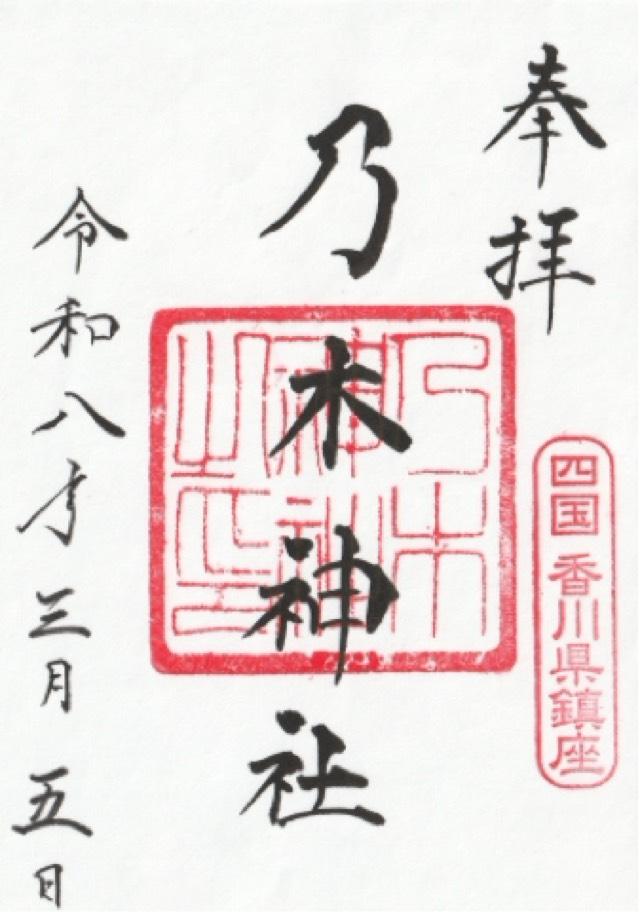 奉拝
四国 香川県鎮座
乃木神社
乃木神社之印
令和八年三月五日